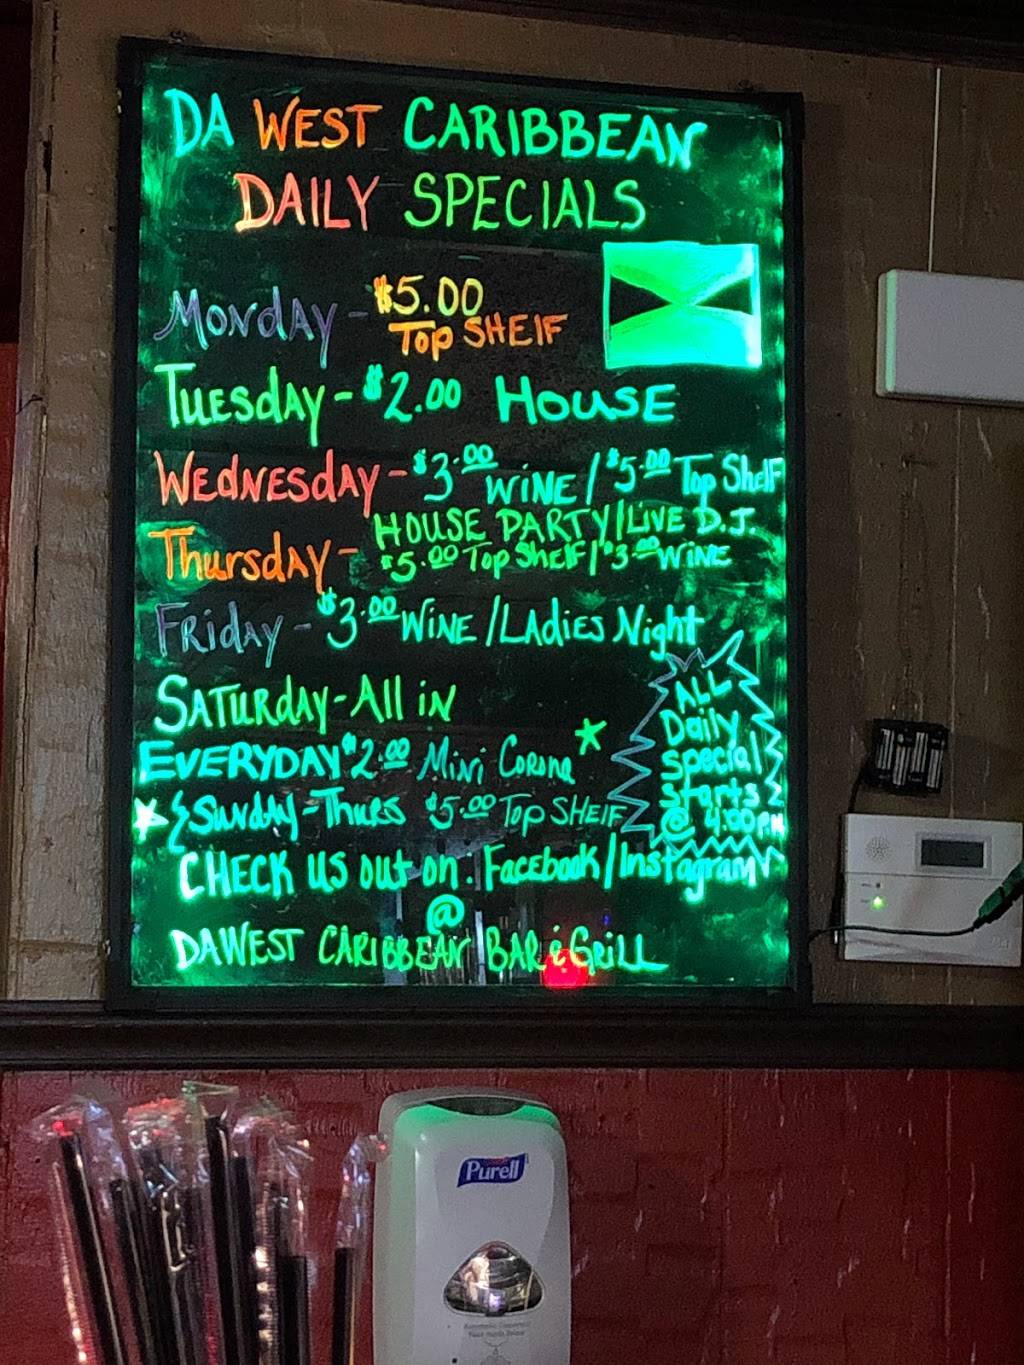 DA WEST CARIBBEAN
DAILY SPECIALS
Monday - $5.00
Top SHElF
Tuesday - $2.00 House
Wednesday - $3.00 WINE / $5.00 Top Shelf
HOUSE PARTY/LIVE D.J.
Thursday - $5.00 Top Shelf / $3.00 WINE
Friday - $3.00 WINE / LAdies Night
SATURday - All iN
EVERYDAY $2.00 Mini Corona
Sunday - Thurs $5.00 Top SHElF
ALL
Daily
special
starts
@ 4:00PM
CHECK us out on: Facebook/Instagram
@
DAWEST CARIBBEAN BAR & GRILL
Purell